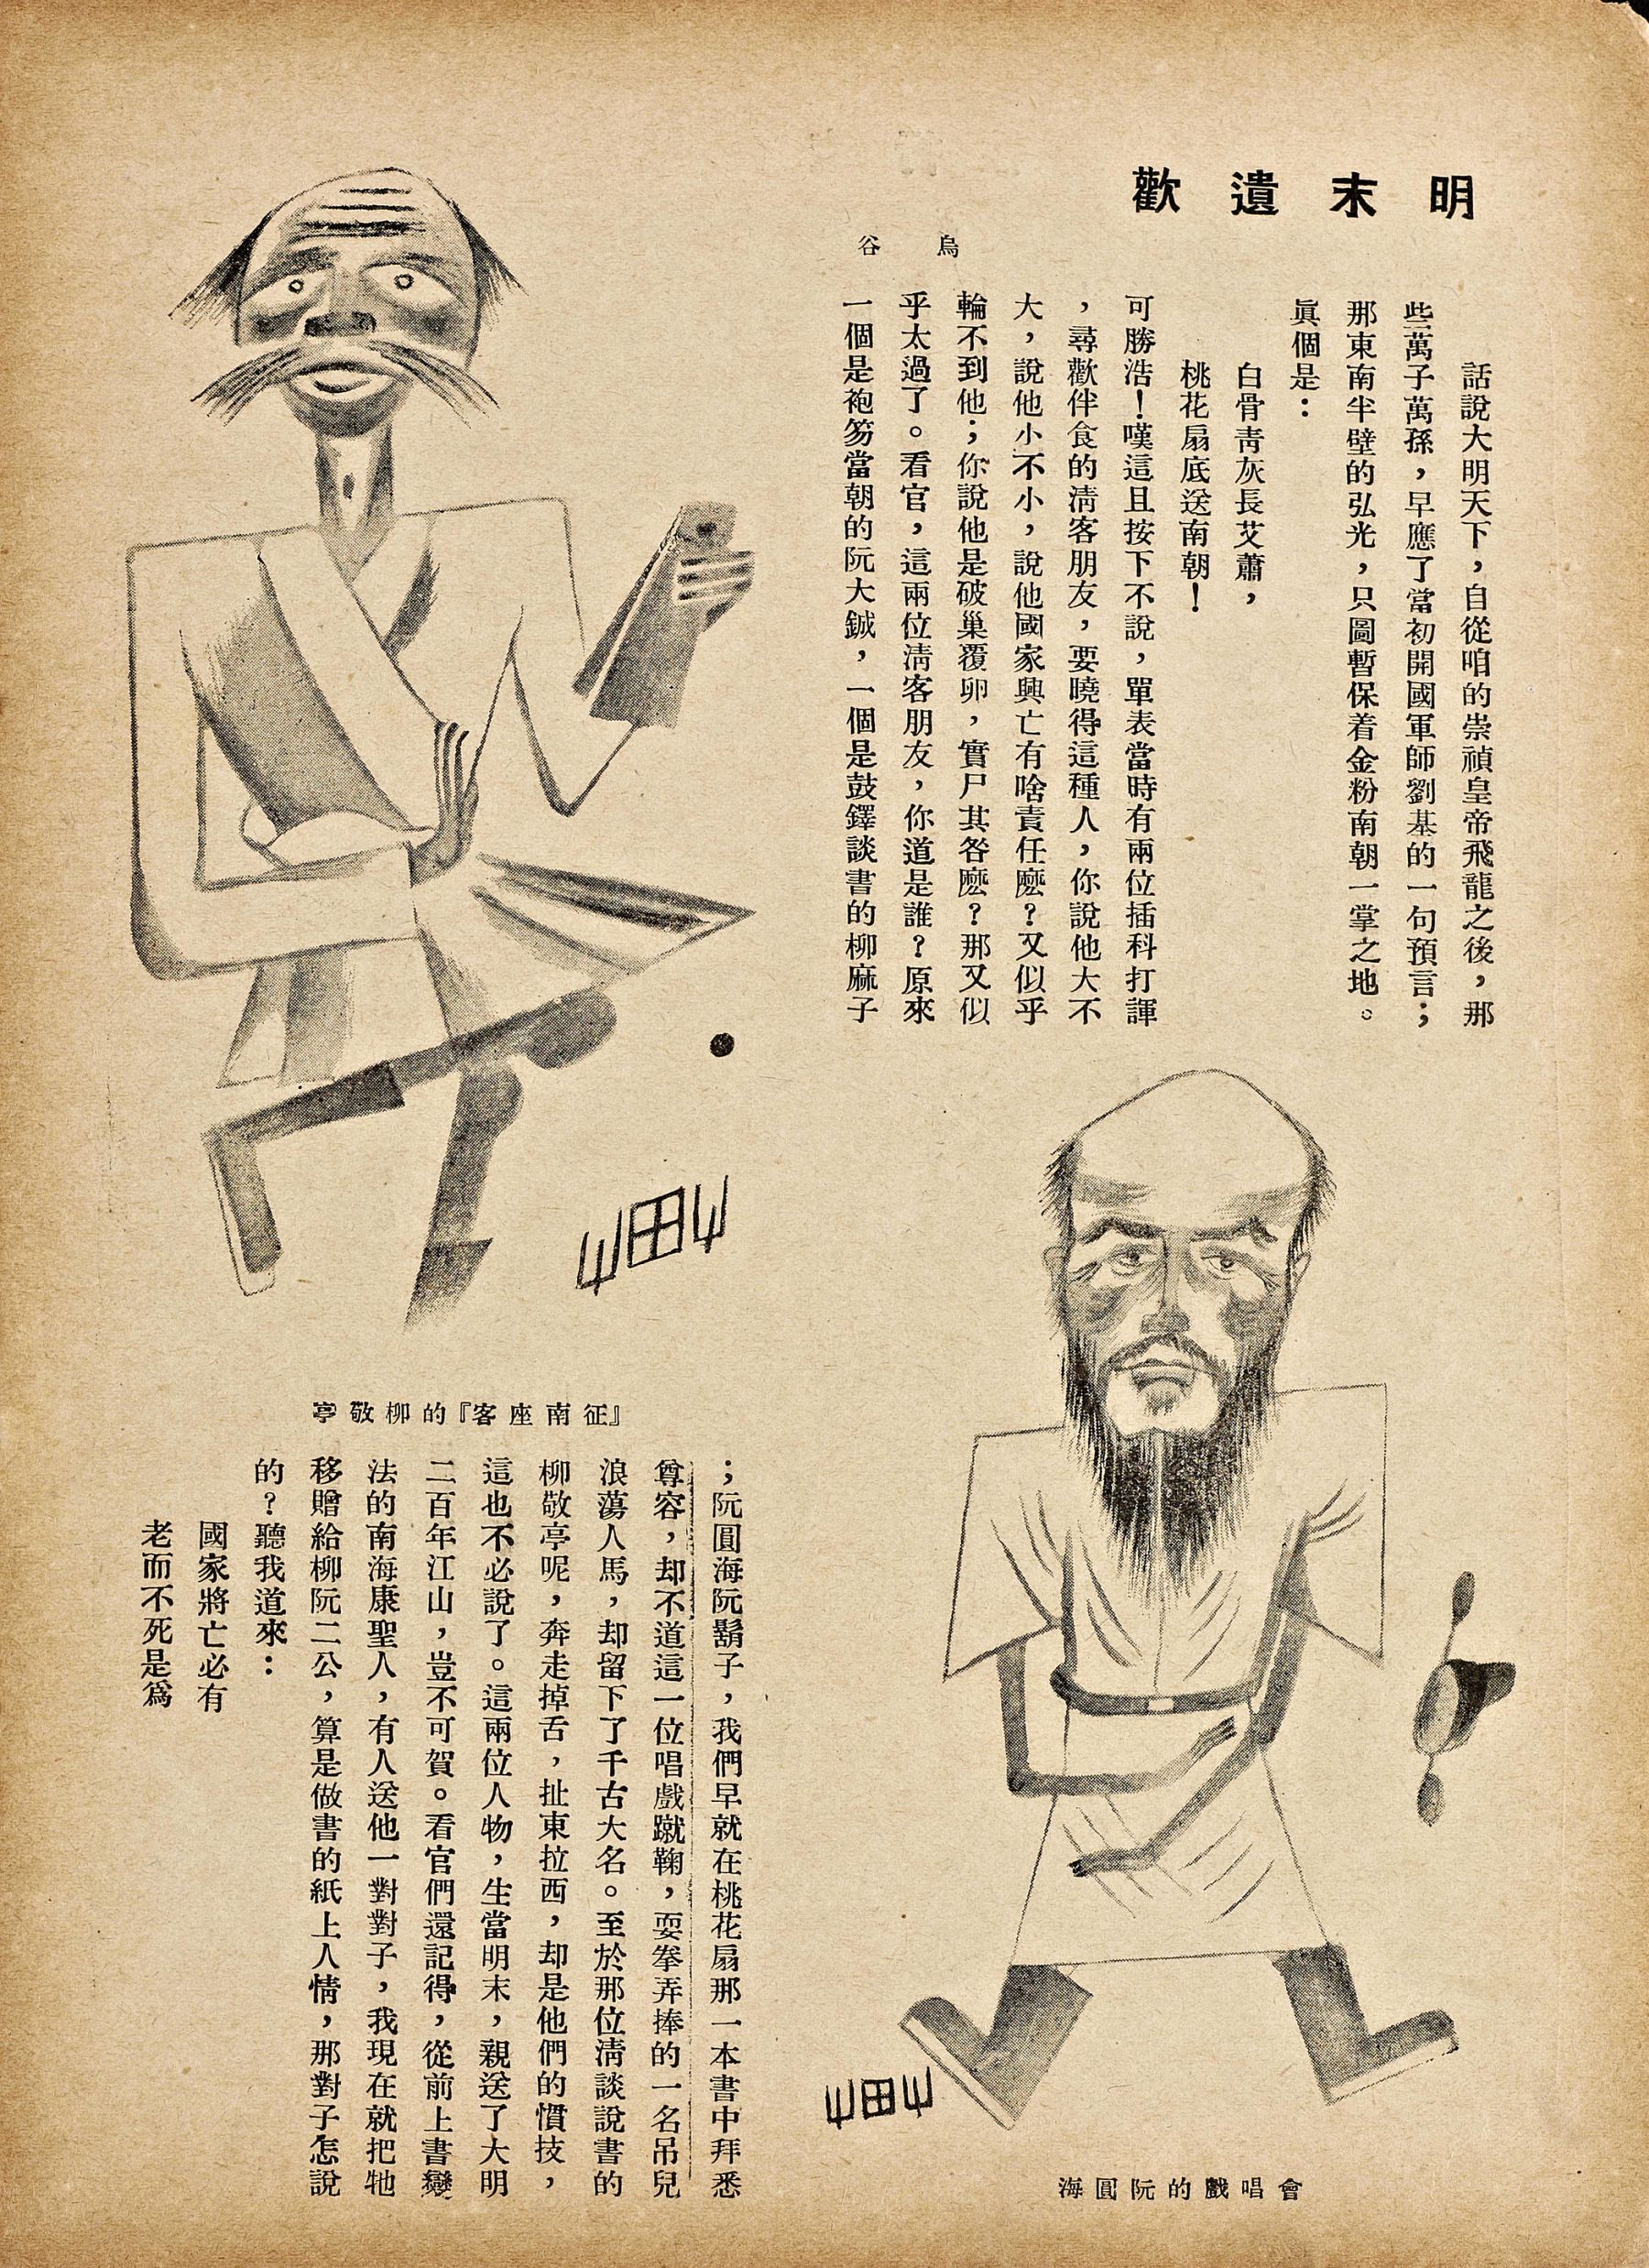 明末遺歡
烏谷
話說大明天下，自從咱的崇禎皇帝飛龍之後，那
些萬子萬孫，早應了當初開國軍師劉基的一句預言；
那東南半壁的弘光，只圖暫保着金粉南朝一掌之地。
眞個是：
白骨靑灰長艾蕭，
桃花扇底送南朝！
可勝浩！嘆這且按下不說，單表當時有兩位插科打諢
，尋歡伴食的淸客朋友，要曉得這種人，你說他大不
大，說他小不小，說他國家興亡有啥責任麽？又似乎
輪不到他；你說他是破巢覆卵，實尸其咎麽？那又似
乎太過了。看官，這兩位淸客朋友，你道是誰？原來
一個是袍笏當朝的阮大鋮，一個是鼓鐸談書的柳麻子
；阮圓海阮鬍子，我們早就在桃花扇那一本書中拜悉
尊容，却不道這一位唱戲蹴鞠，耍拳弄捧的一名吊兒
浪蕩人馬，却留下了千古大名。至於那位淸談說書的
柳敬亭呢，奔走掉舌，扯東拉西，却是他們的慣技，
這也不必說了。這兩位人物，生當明末，親送了大明
二百年江山，豈不可賀。看官們還記得，從前上書變
法的南海康聖人，有人送他一對對子，我現在就把牠
移贈給柳阮二公，算是做書的紙上人情，那對子怎說
的？聽我道來：
國家將亡必有
老而不死是爲
『征南座客』的柳敬亭
會唱戲的阮圓海
山田山
山田山